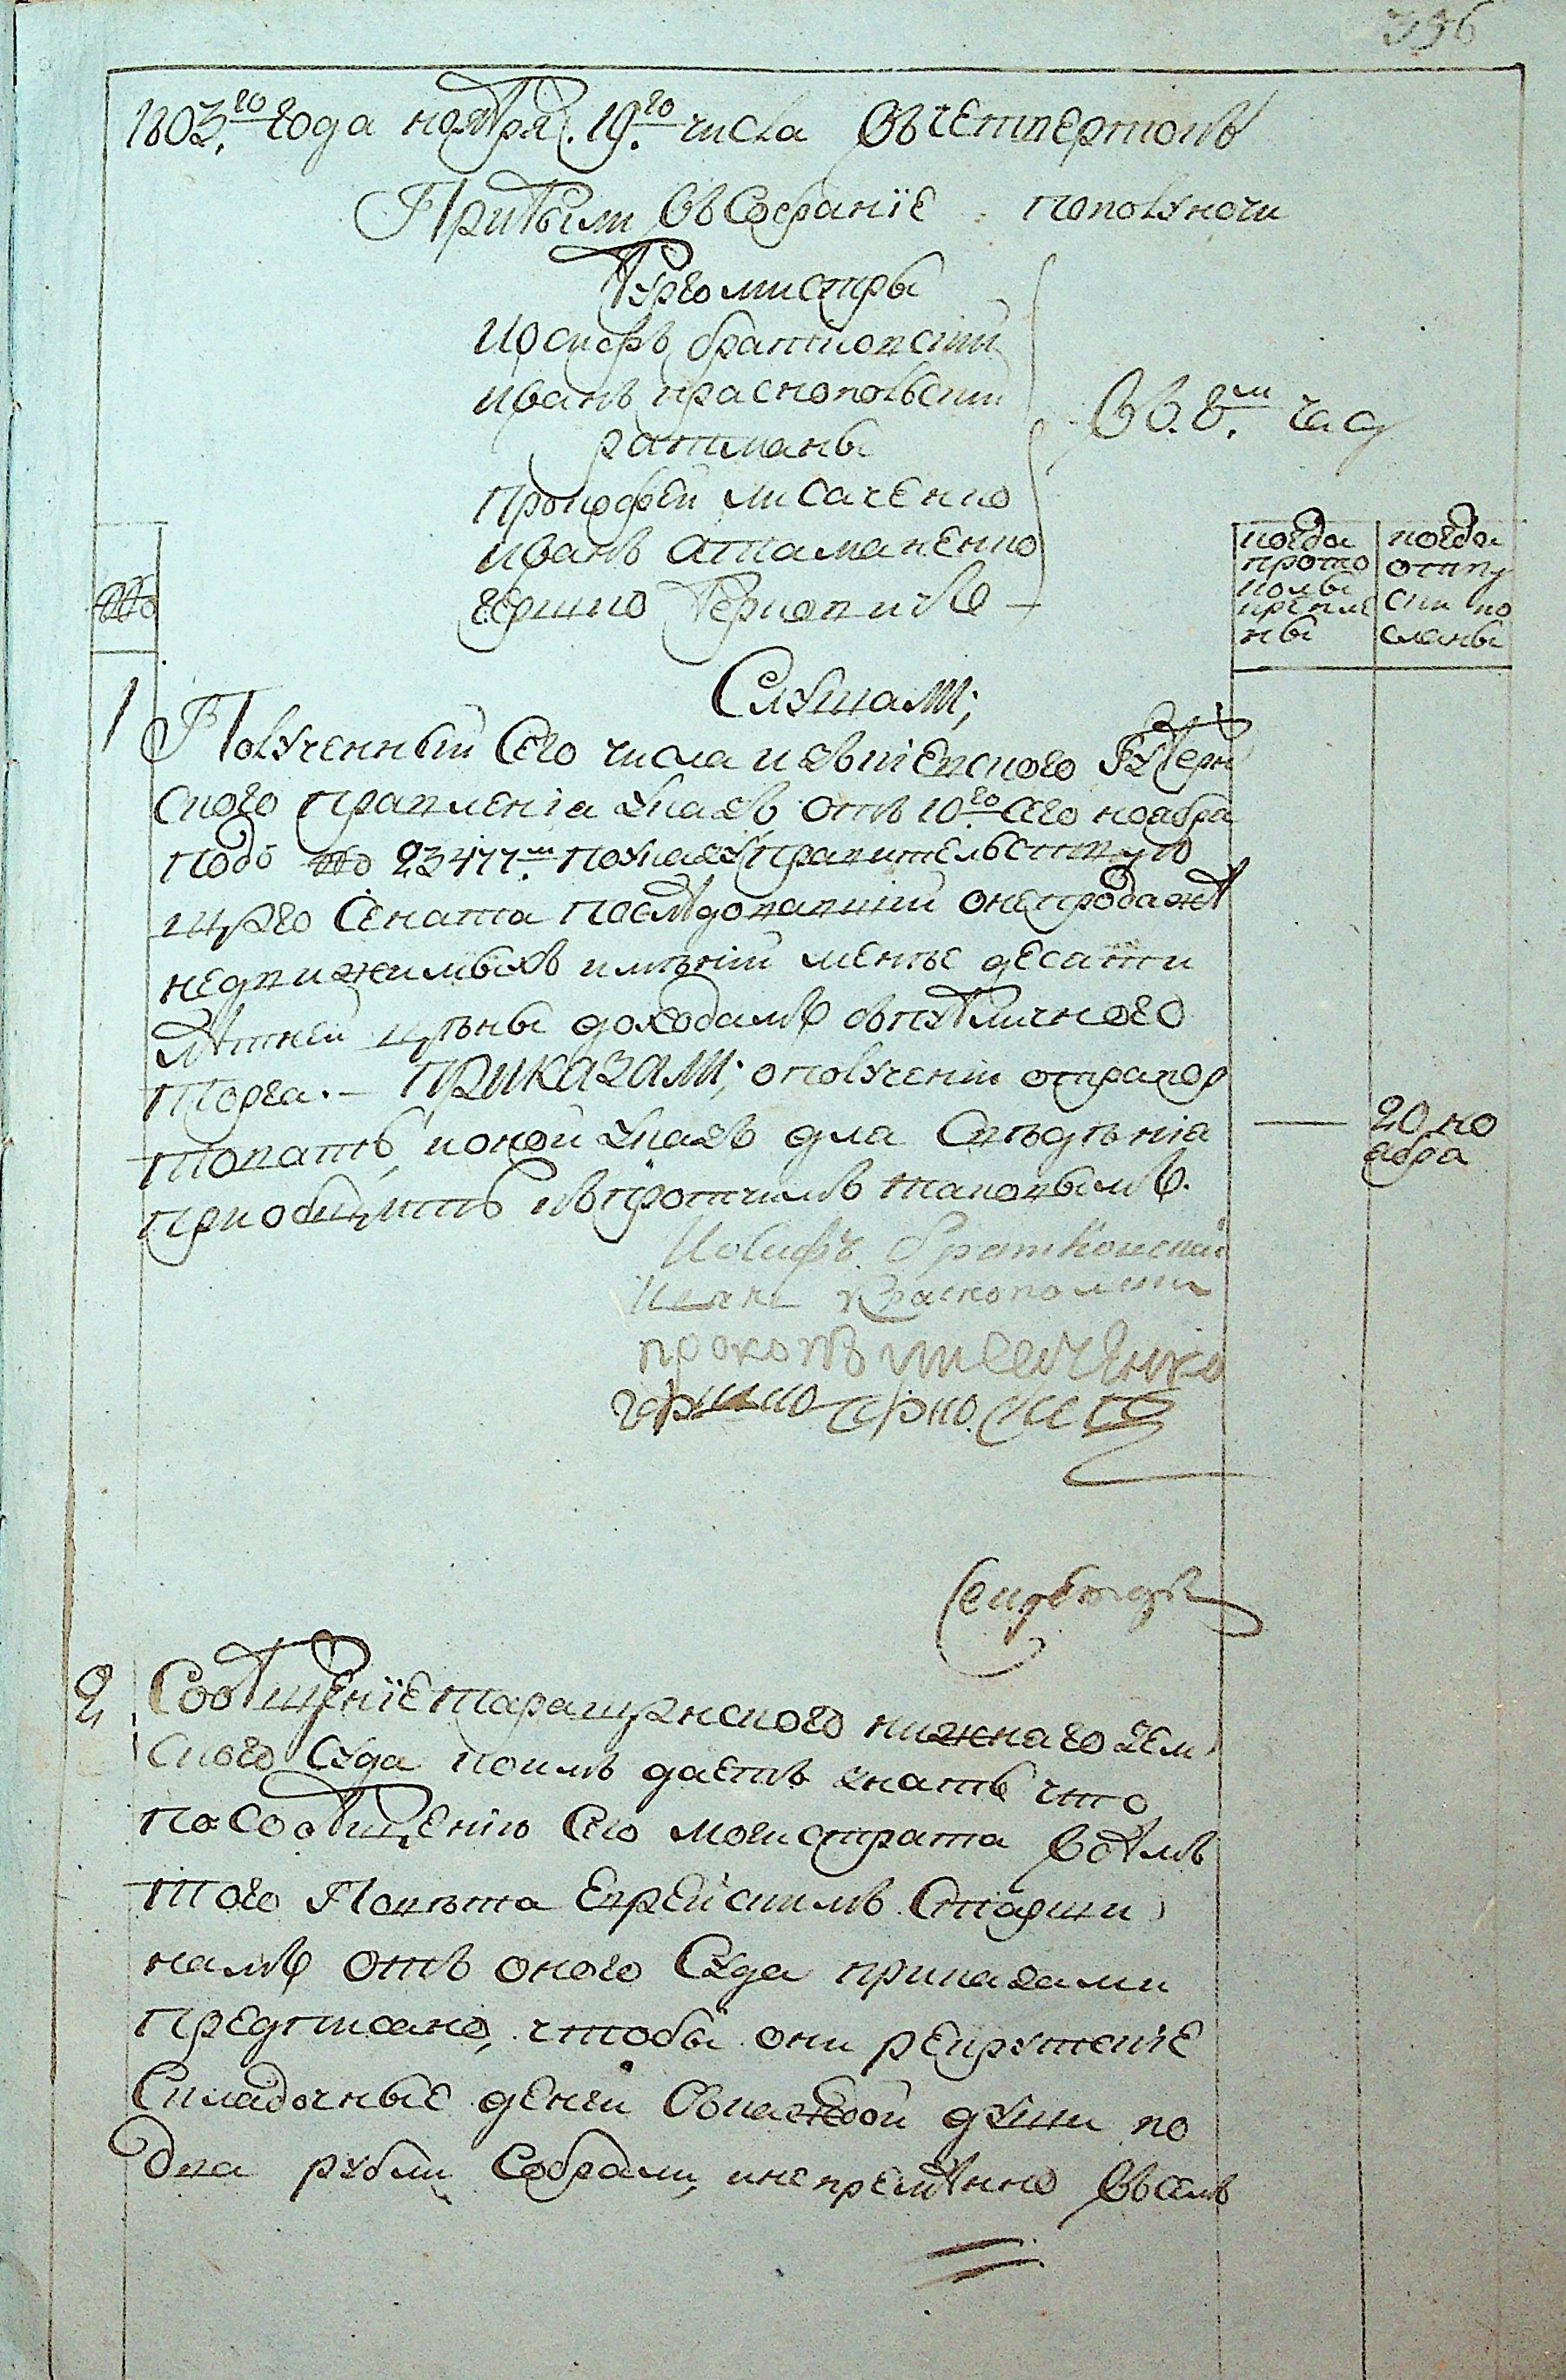 396
1803.го года ноября. 19.го числа въ четвертокъ
Прибыли въ Собраніе пополуночи
Бургомистры
Иосифъ братковскій
иванъ краснопольскій
ратманы
Прокофей лисаченко
иванъ атаманенко
въ. 8.м часу
№
когда прото колы пречтены
когда отпуски посланы
Слушали;
1
Полученный сего числа и Кіевского Губерн
ского правленія указъ отъ 10.го сего ноября
подъ № 23477.м по указу правительствую
щего Сената последовавшій о непродаже
недвижимыхъ имѣній менѣе десяти
летней цѣны доходамъ съ публичного
торга. — Приказали; о полученіи отрапор
товать, и оной указъ для Свѣдѣнія
приобщить къ протчимъ таковымъ.
20 но
ября
Иосифъ Братковскій
Иванъ Краснополскій
Секретарь
2
Сообщеніе таращанского нижнаго зем
ского Суда коимъ даетъ знать что
по сообщенію сего магистрата всемъ
того Повѣта Еврейскимъ Старши
намъ отъ оного Суда приказами
предписано, чтобы они рекрутскіе
Складочные денги съ каждой души по
два рубли Собрали, и непременно въ семъ